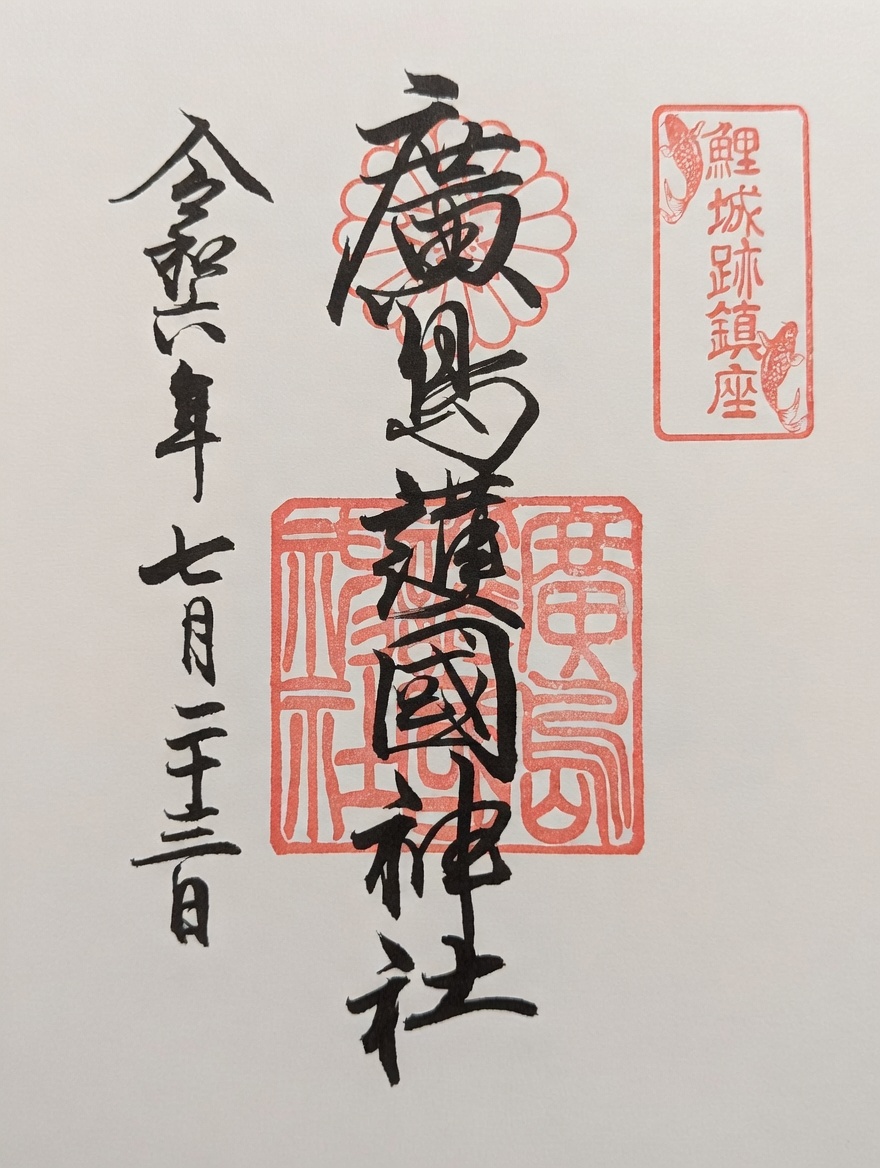 鯉城跡鎮座
廣島護國神社
廣島護國神社
令和六年七月二十三日